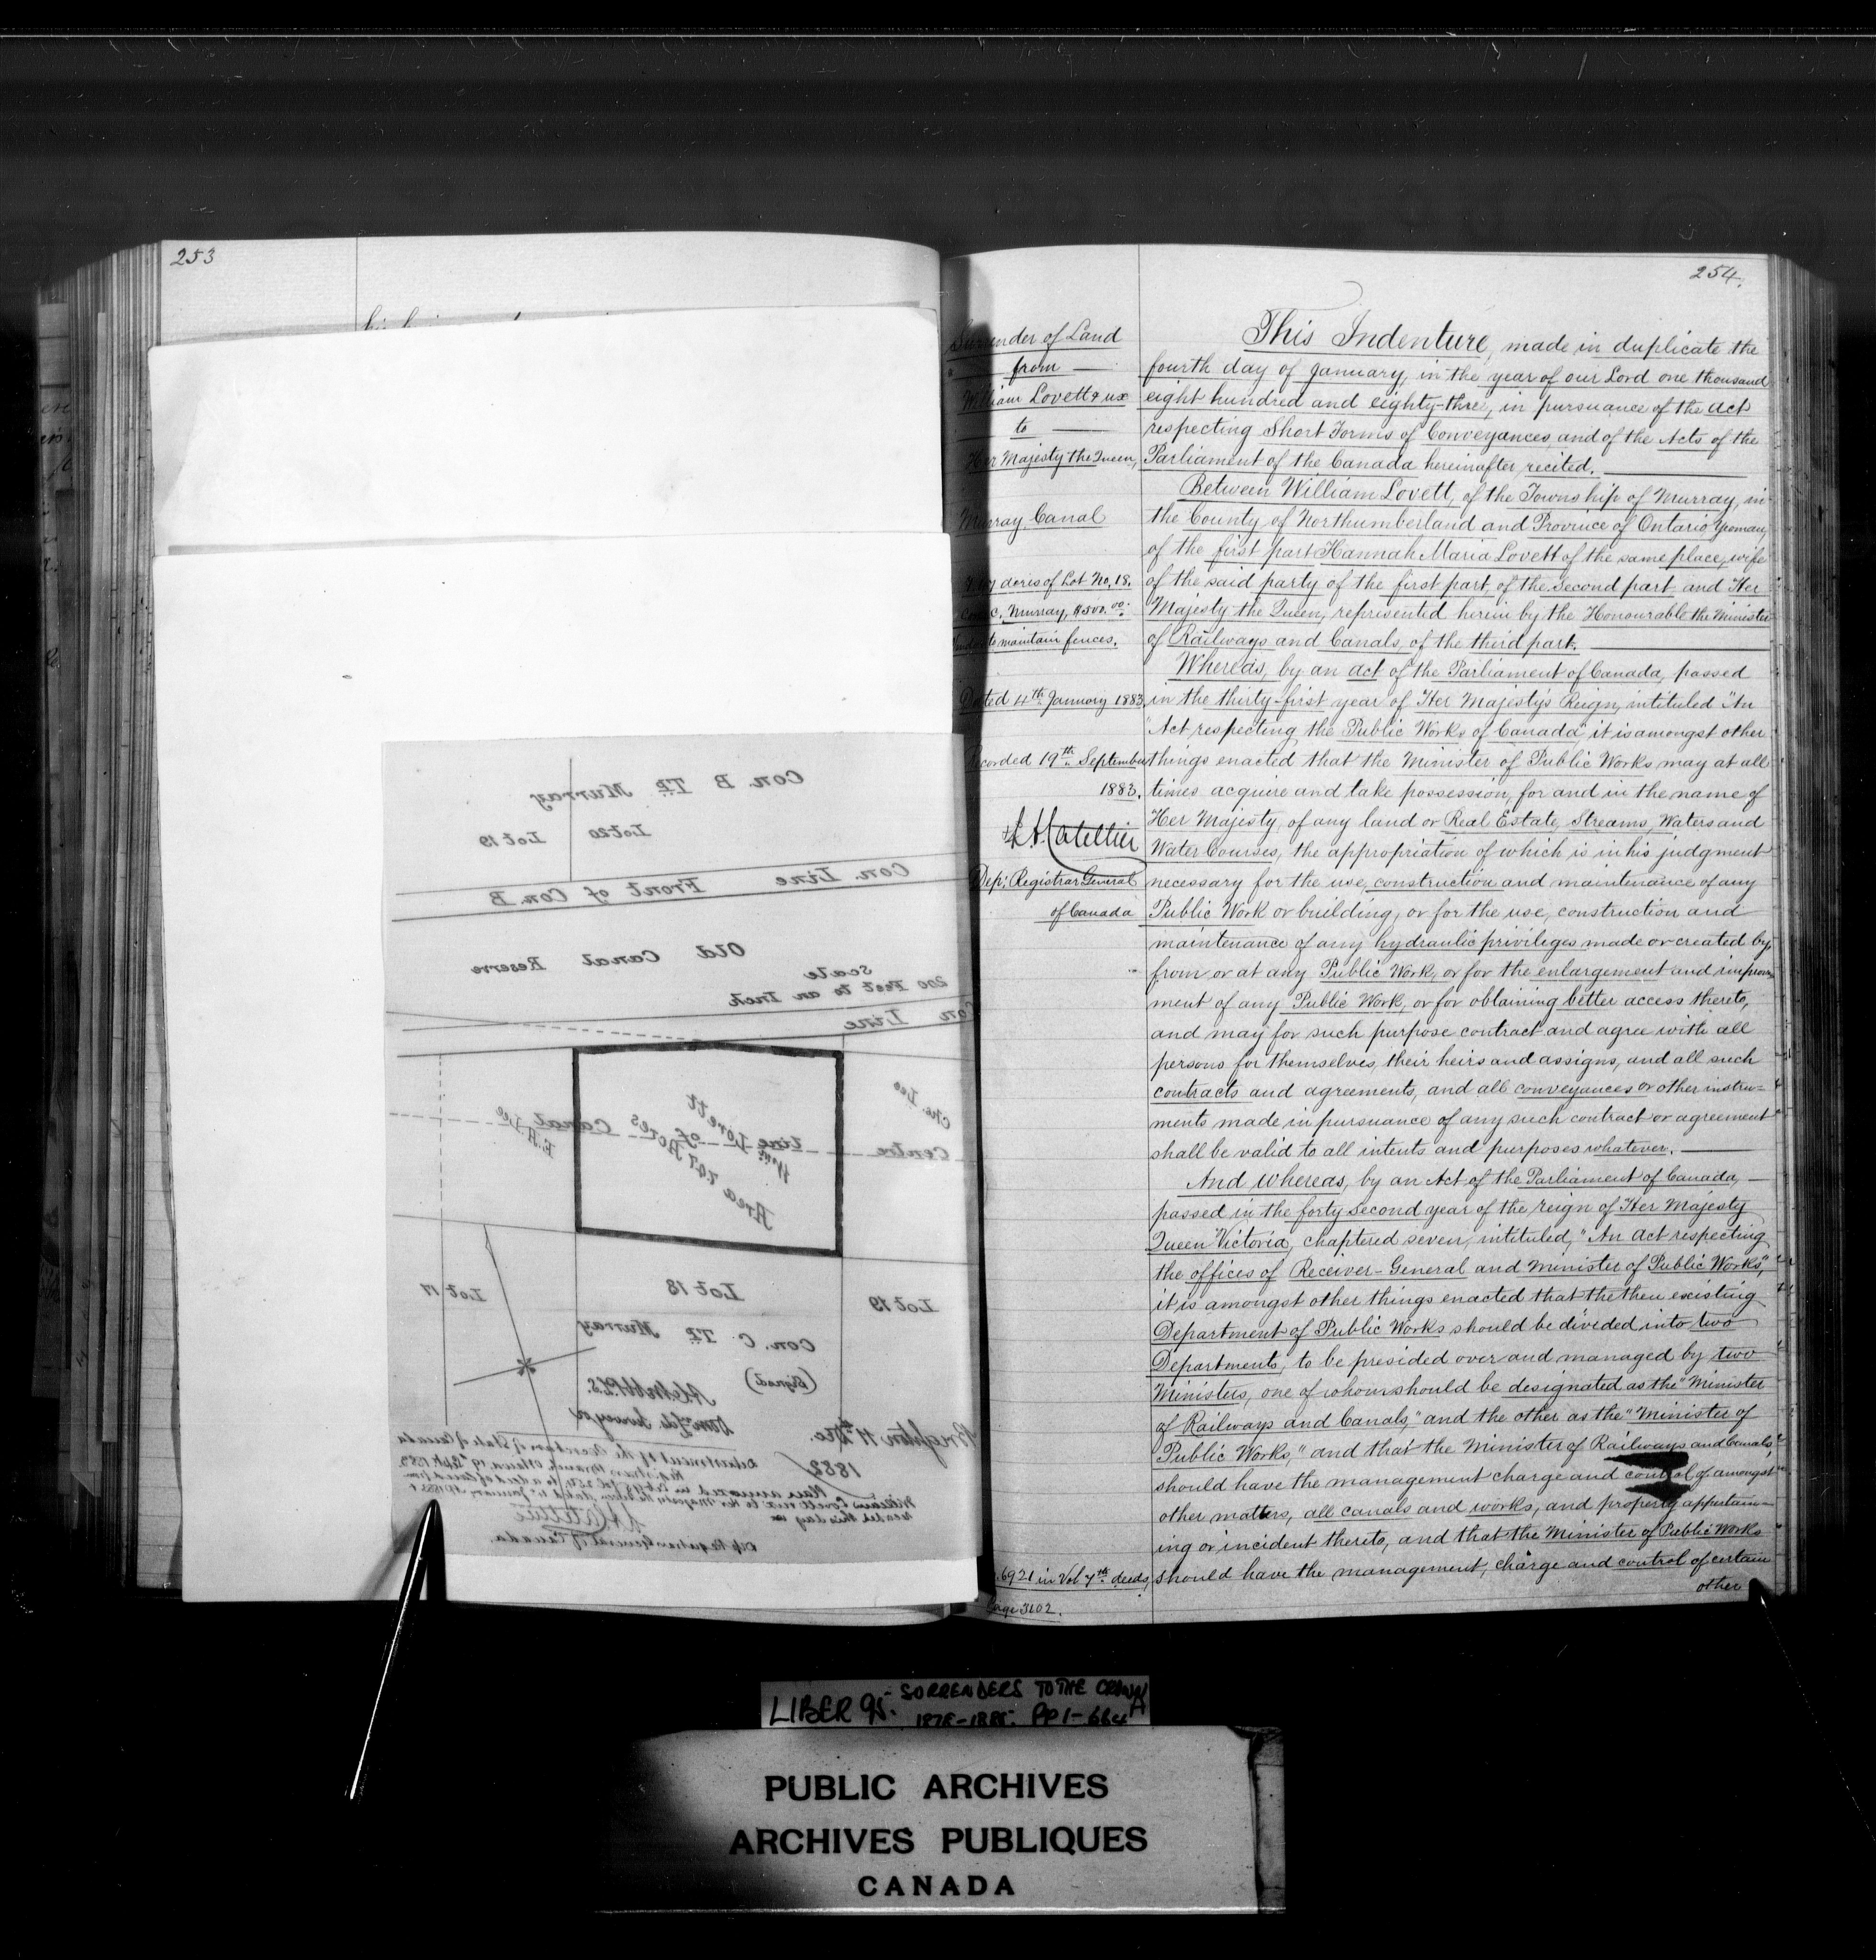 253
254.
Surrender of Land
from
William Lovett & ux
to
Her Majesty the Queen,
Murray Canal
acres of Lot No. 18.
Con. C. Murray, $500.00.
to maintain fences.
Dated 4th January 1883
Recorded 19th September
1883.
Dep: Registrar General
of Canada
6921 in Vol 7th deeds,
Page 3102.
This Indenture, made in duplicate the
fourth day of January, in the year of our Lord one thousand
eight hundred and eighty-three, in pursuance of the Act
respecting Short Forms of Conveyances, and of the Acts of the
Parliament of the Canada hereinafter recited.
Between William Lovett, of the Township of Murray, in
the County of Northumberland and Province of Ontario Yeoman,
of the first part Hannah Maria Lovett of the same place, wife
of the said party of the first part, of the second part and Her
Majesty the Queen, represented herein by the Honourable the Minister
of Railways and Canals, of the third part.
Whereas, by an act of the Parliament of Canada, passed
in the thirty-first year of Her Majesty's Reign, intituled "An
"Act respecting the Public Works of Canada" it is amongst other
things enacted that the Minister of Public Works may at all
times acquire and take possession, for and in the name of
Her Majesty, of any land or Real Estate, Streams, Waters and
Water Courses, the appropriation of which is in his judgment
necessary for the use, construction and maintenance of any
Public Work or building, or for the use, construction and
maintenance of any hydraulic privileges made or created by,
from or at any Public Work, or for the enlargement and improve
ment of any Public Work, or for obtaining better access thereto,
and may for such purpose contract and agree with all
persons for themselves, their heirs and assigns, and all such
contracts and agreements, and all conveyances or other instru=
ments made in pursuance of any such contract or agreement
shall be valid to all intents and purposes whatever.
And whereas, by an Act of the Parliament of Canada,
passed in the forty second year of the reign of Her Majesty
Queen Victoria, chaptered seven, intituled, "An Act respecting
the offices of Receiver-General and Minister of Public Works,"
it is amongst other things enacted that the then existing
Department of Public Works should be divided into two
Departments, to be presided over and managed by two
Ministers, one of whom should be designated as the "Minister
of Railways and Canals," and the other as the "Minister of
Public Works," and that the Minister of Railways and Canals,
should have the management charge and control of amongst
other matters, all canals and works, and property appertain=
ing or incident thereto, and that the Minister of Public Works
should have the management, charge and control of certain
other
Con. B Tp Murray
Lot 20 Lot 19
Con. Line Front of Con. B
Old Canal Reserve
Scale
200 Feet to an Inch
Con Line
Chs. Dee
Centre Line of Canal
Wm. Lovett
Area 7.07 Acres
Lot 19 Lot 18 Lot 17
Con. C. Tp Murray
(Signed)
Brighton 11th Dec.
1882
Department of the Secretary of State of Canada
Registrar's Branch, Ottawa, 19. Sept. 1883.
Plan annexed to a deed of Land from
William Lovett & ux to Her Majesty the Queen, dated 4th January, A.D. 1883 &
Dep. Registrar General of Canada.
LIBER 95. SORRENDERS TO THE CROWN
1876-1885. PP 1-664
PUBLIC ARCHIVES
ARCHIVES PUBLIQUES
CANADA